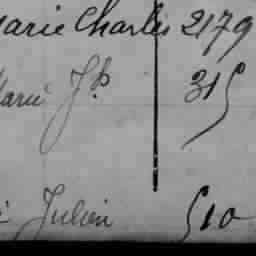 Marie Charles 2179
Marie Jh 315
Julien 510